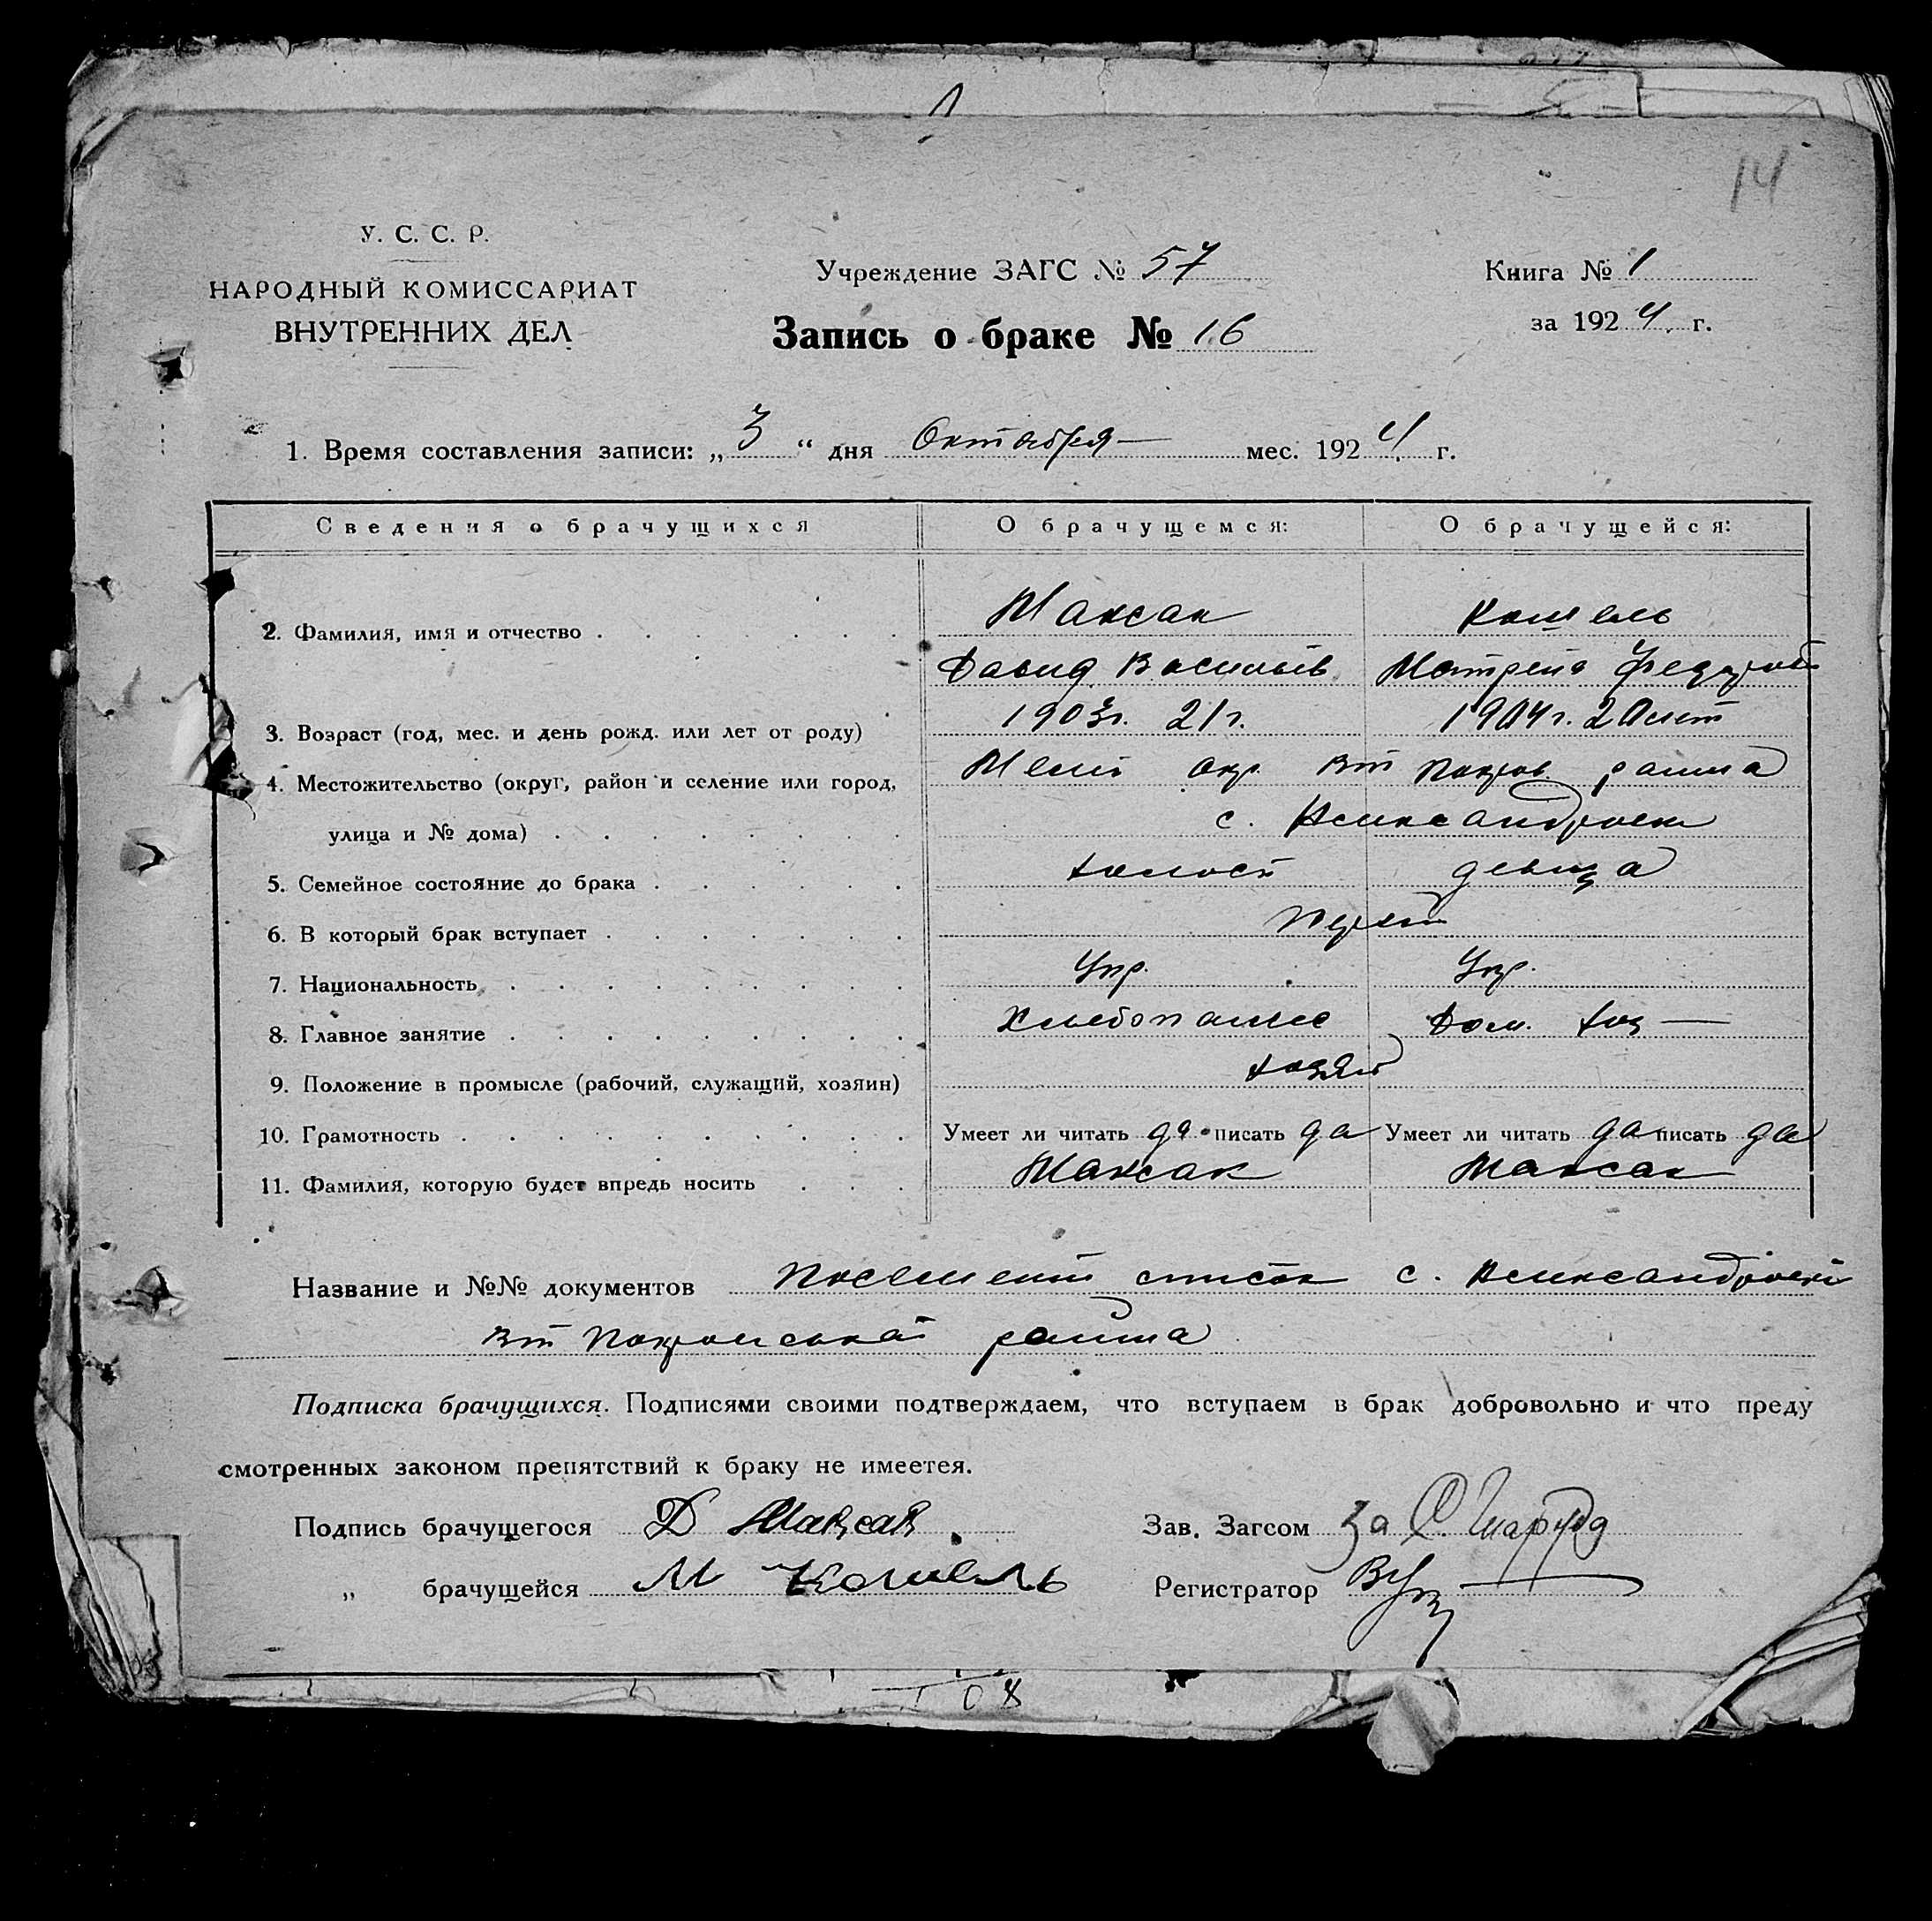 14
У. С. С. Р.
НАРОДНЫЙ КОМИССАРИАТ
ВНУТРЕННИХ ДЕЛ
Учреждение ЗАГС № 57
Книга № 1
Запись о браке № 16
за 1924 г.
1. Время составления записи: „ 3 “ дня Октября — мес. 1924 г.
Сведения о брачущихся О брачущемся: О брачущейся:
2. Фамилия, имя и отчество Максак Кошель
Давид Васильев
3. Возраст (год, мес. и день рожд. или лет от роду) 1903г. 21г. 1904г. 20 лет
4. Местожительство (округ, район и селение или город, окр. Покров. района
улица и № дома) с.
5. Семейное состояние до брака холост девица
6. В который брак вступает
7. Национальность Укр. Укр.
8. Главное занятие Дом. хоз —
9. Положение в промысле (рабочий, служащий, хозяин)
10. Грамотность Умеет ли читать да писать да Умеет ли читать да писать да
11. Фамилия, которую будет впредь носить Максак Максак
Название и №№ документов список с.
района
Подписка брачущихся. Подписями своими подтверждаем, что вступаем в брак добровольно и что преду
смотренных законом препятствий к браку не имеетея.
Подпись брачущегося Д Максак Зав. Загсом За
„ брачущейся М Кошель Регистратор
108